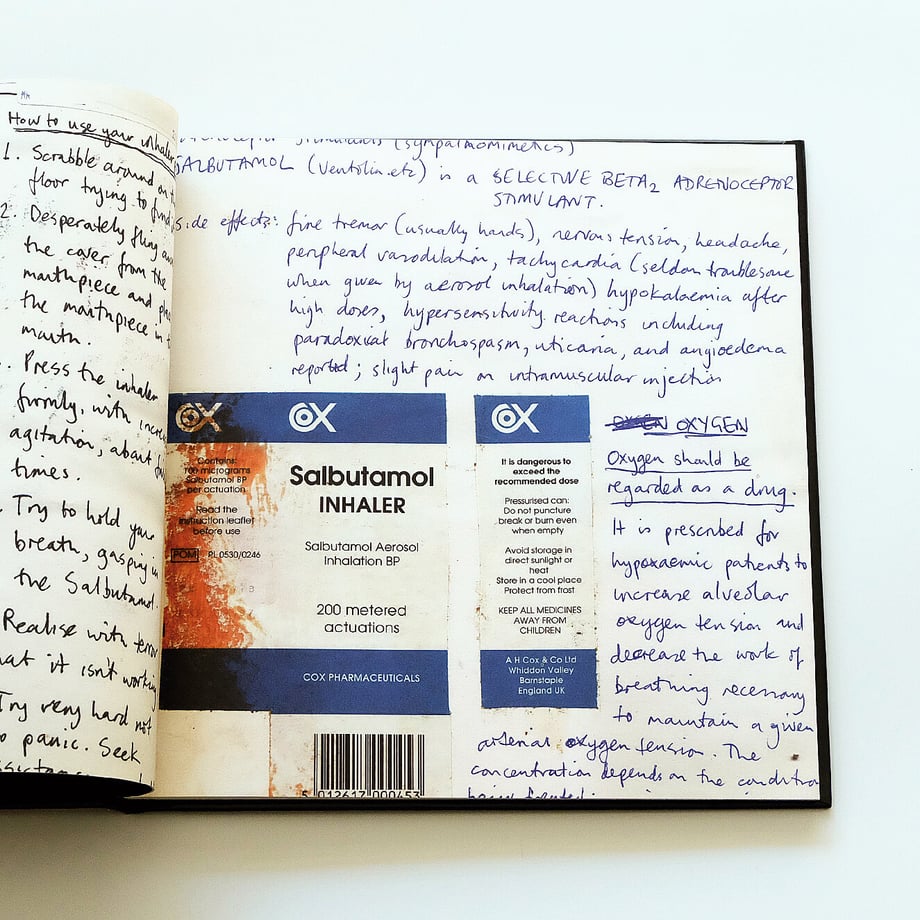 How to use your inhaler
1. Scrabble around on
floor trying to find
2. Desperately fling
the cover from the
mouthpiece and
the mouthpiece in
mouth.
Press the inhaler
firmly, with
agitation, about
times.
Try to hold your
breath, gasping in
the Salbutamol.
Realise with terror
that it isn't working
Try very hard not
to panic. Seek
(sympathomimetics)
SALBUTAMOL (Ventolin etc) is a SELECTIVE BETA2 ADRENOCEPTOR
STIMULANT.
side effects: fine tremor (usually hands), nervous tension, headache,
peripheral vasodilation, tachycardia (seldom troublesome
when given by aerosol inhalation) hypokalaemia after
high doses, hypersensitivity reactions including
paradoxical bronchospasm, uticaria, and angioedema
reported; slight pain on intramuscular injection
COX
Contains:
100 micrograms
Salbutamol BP
per actuation
Read the
instruction leaflet
before use
POM PL 0530/0246
COX
Salbutamol
INHALER
Salbutamol Aerosol
Inhalation BP
200 metered
actuations
COX PHARMACEUTICALS
5 012617 000453
COX
It is dangerous to
exceed the
recommended dose
Pressurised can:
Do not puncture
break or burn even
when empty
Avoid storage in
direct sunlight or
heat
Store in a cool place
Protect from frost
KEEP ALL MEDICINES
AWAY FROM
CHILDREN
A H Cox & Co Ltd
Whiddon Valley
Barnstaple
England UK
OXYGEN
Oxygen should be
regarded as a drug.
It is prescribed for
hypoxaemic patients to
increase alveolar
oxygen tension and
decrease the work of
breathing necessary
to maintain a given
arterial oxygen tension. The
concentration depends on the condition
being treated.